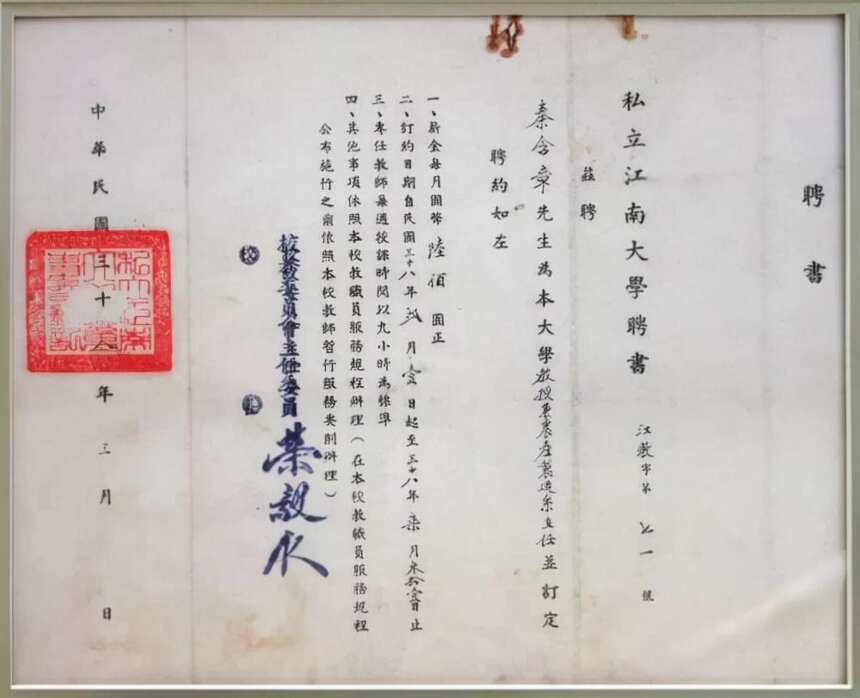 聘書
私立江南大學聘書 江教字第七一號
茲聘
秦含章先生為本大學教授兼農產製造系主任並訂定
聘約如左
一、薪金每月國幣陸佰圓正
二、訂約日期自民國三十八年貳月壹日起至三十八年柒月叁拾壹日止
三、專任教師每週授課時間以九小時為標準
四、其他事項依照本校教職員服務規程辦理(在本校教職員服務規程
公布施行之前依照本校教師暫行服務要則辦理)
校務委員會主任委員 榮毅仁
中華民國三十八年三月 日